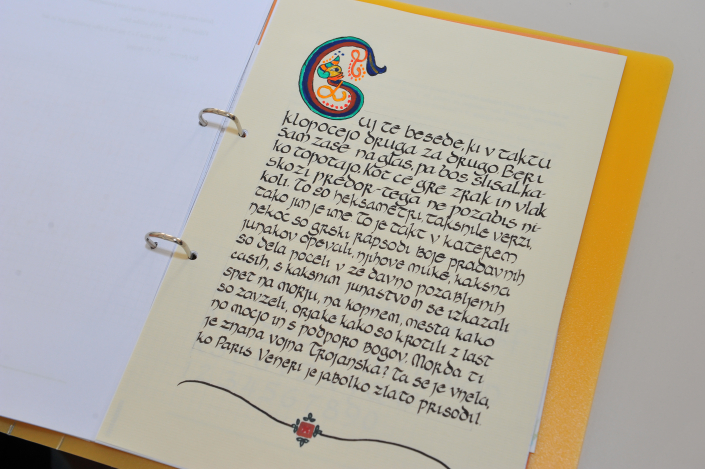 Čuj te besede, ki v taktu
klopočejo druga za drugo. Beri
sam zase na glas, pa boš slišal, ka-
ko topotajo, kot če gre zrak in vlak
skozi predor - tega ne pozabiš ni-
koli. To so heksametri, takšnile verzi,
tako jim je ime. To je takt, v katerem
nekoč so grški rapsodi boje pradavnih
junakov opevali, njihove muke, kakšna
so dela počeli v že davno pozabljenih
časih, s kakšnim junaštvom se izkazali
spet na morju, na kopnem, mesta kako
so zavzeli, orjake kako so krotili z last
no močjo in s podporo bogov. Morda ti
je znana vojna Trojanska? Ta se je vnela,
ko Paris Veneri je jabolko zlato prisodil.